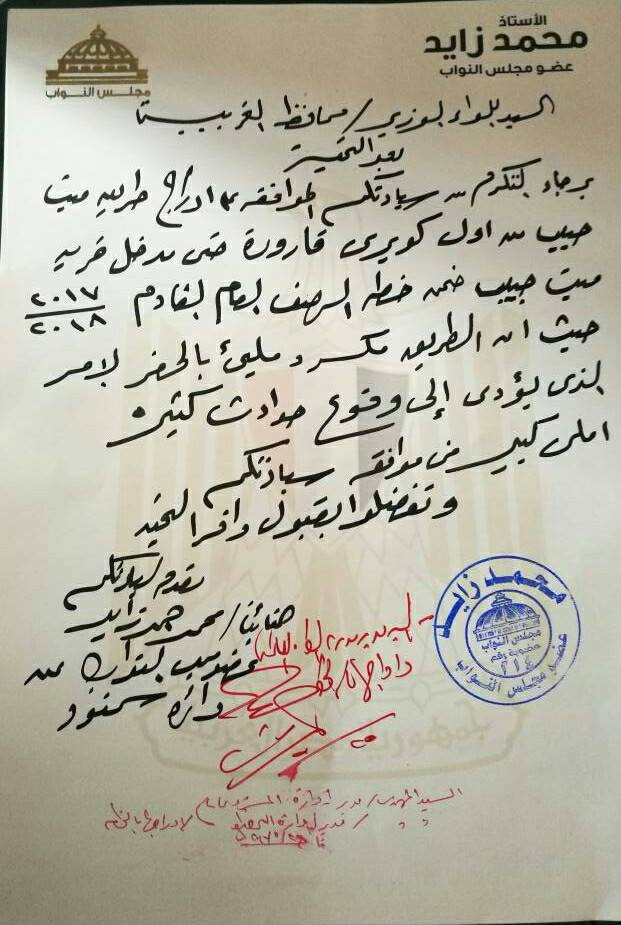 الأستاذ
محمد زايد
عضو مجلس النواب
مجلس النواب
السيد اللواء الوزير / محافظ الغربية
بعد التحية
برجاء التكرم من سيادتكم الموافقة على ادراج طريق ميت
حبيب من اول كوبرى قارورة حتى مدخل قرية
ميت حبيب ضمن خطة الرصف العام القادم ٢٠١٧/٢٠١٨
حيث ان الطريق مكسر و مليئ بالحفر الامر
الذى يؤدى إلى وقوع حوادث كثيرة
املى كبير فى موافقة سيادتكم
وتفضلوا بقبول وافر التحية
مقدمه لسيادتكم
النائب / محمد زايد
عضو مجلس النواب عن
دائرة سمنود
محمد زايد
مجلس النواب
عضوية رقم
٢١٤
عضو مجلس النواب
السيد المهندس / مدير ادارة